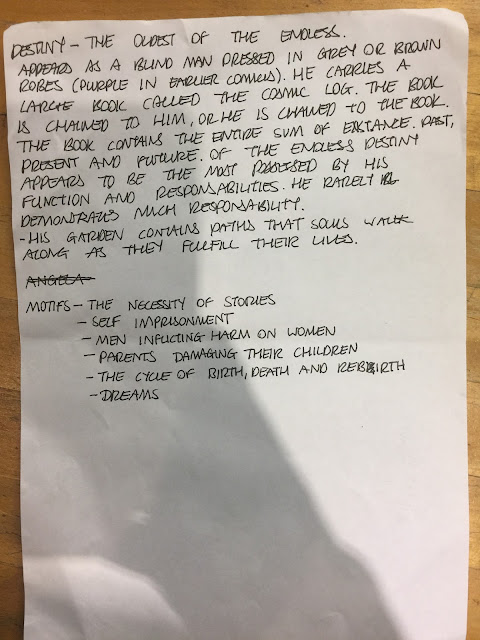 DESTINY – THE OLDEST OF THE ENDLESS.
APPEARS AS A BLIND MAN DRESSED IN GREY OR BROWN
ROBES (PURPLE IN EARLIER COMICS). HE CARRIES A
LARGE BOOK CALLED THE COSMIC LOG. THE BOOK
IS CHAINED TO HIM, OR HE IS CHAINED TO THE BOOK.
THE BOOK CONTAINS THE ENTIRE SUM OF EXISTANCE. PAST,
PRESENT AND FUTURE. OF THE ENDLESS DESTINY
APPEARS TO BE THE MOST POSSESSED BY HIS
FUNCTION AND RESPONSABILITIES. HE RARELY
DEMONSTRATES MUCH RESPONSABILITY.
- HIS GARDEN CONTAINS PATHS THAT SOULS WALK
ALONG AS THEY FULFILL THEIR LIVES.
ANGELA
MOTIFS – THE NECESSITY OF STORIES
- SELF IMPRISONMENT
- MEN INFLICTING HARM ON WOMEN
- PARENTS DAMAGING THEIR CHILDREN
- THE CYCLE OF BIRTH, DEATH AND REBIRTH
- DREAMS